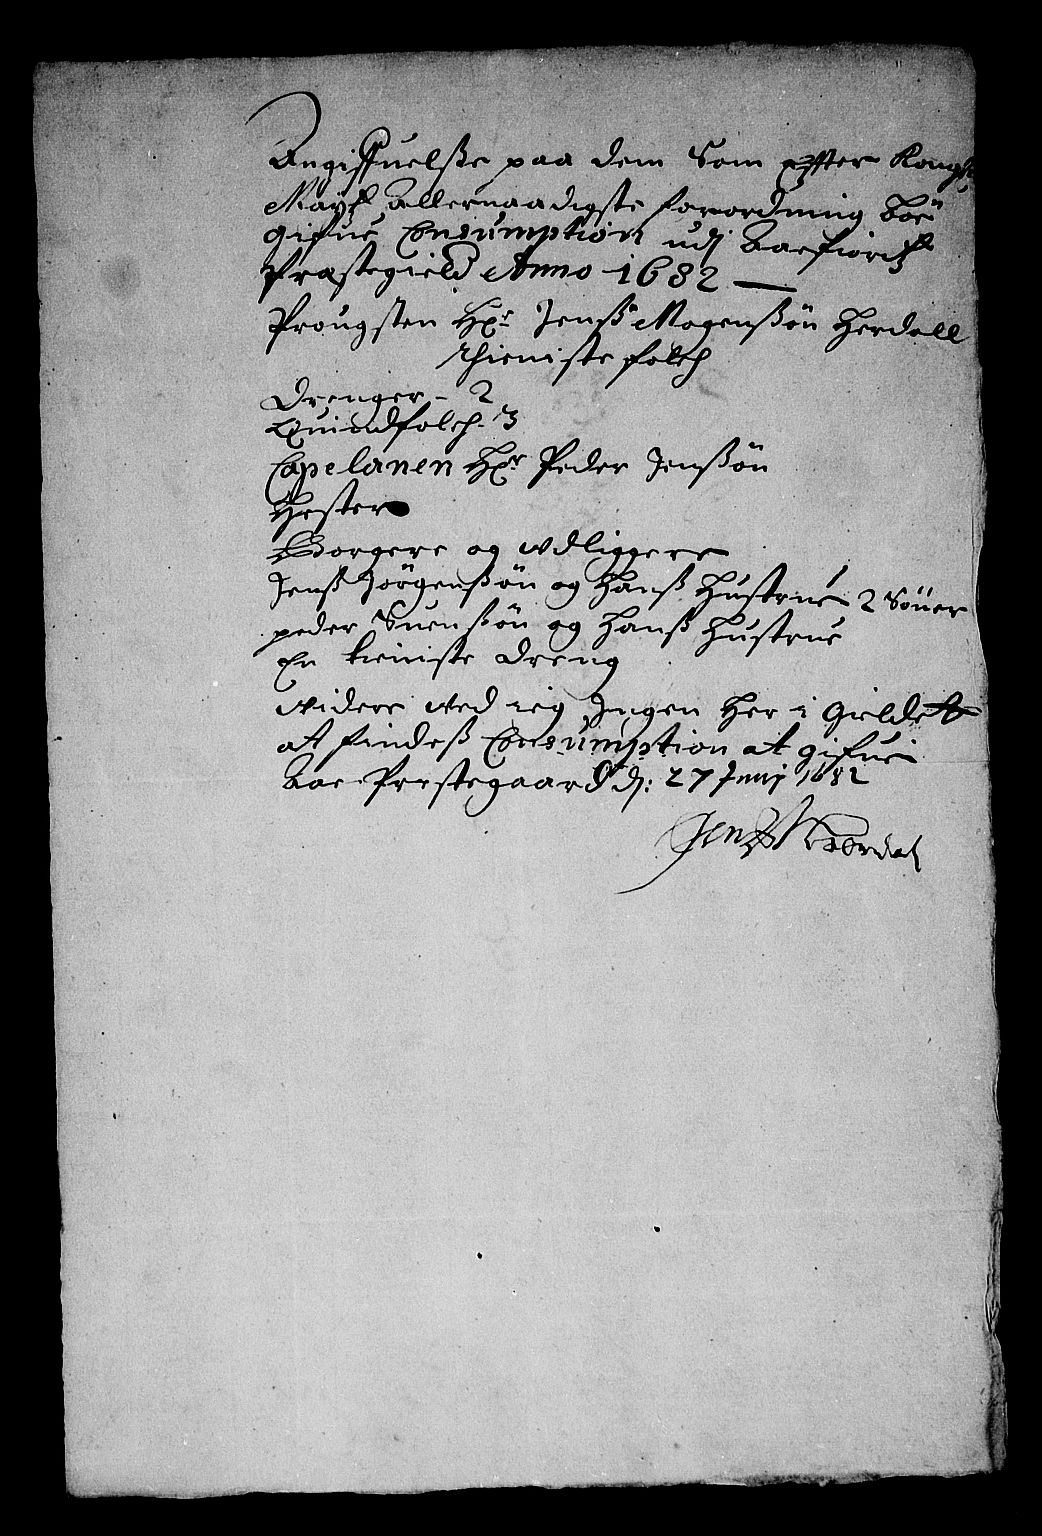 Angiffuelsse paa dem Som effter Kongl
Mayst Allernaadigste forordning bør
gifue Consumption udj Borfiordtz
Præstegield Anno 1682
Prougsten Hr Jenss Mogenssøn Herdall
thieniste folch
Drenger - 2
Quindfolch - 3
Capelanen Hr Peder Jenssøn
Hester
Borgere og vdliggere
Jenss Jørgenssøn og Hanss Hustrue 2 Sønner
peder Suenssøn og Hanss Hustrue
En tieniste dreng
videre ved ieg Ingen Her i Gieldet
at findess Consumption at gifue
Boe Prestegaard dj: 27 Junij 1682
Jenss M Hérdal